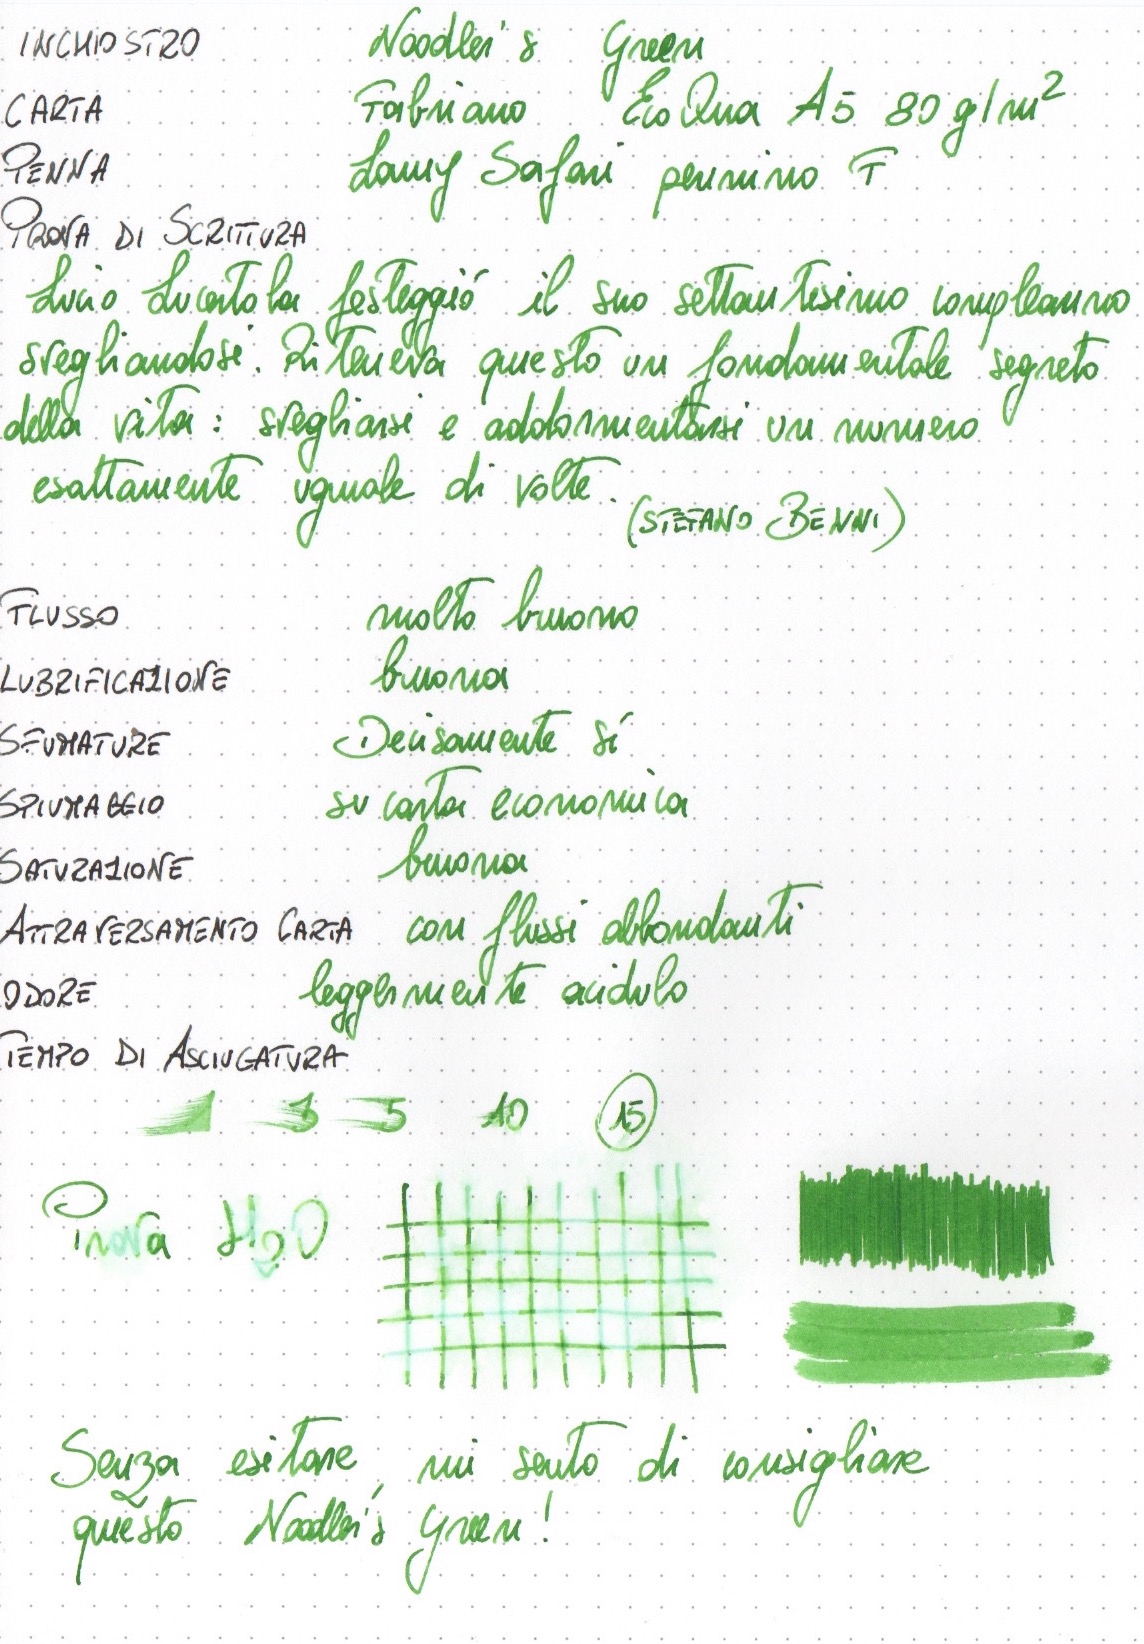 INCHIOSTRO Noodler's Green
CARTA Fabriano EcoQua A5 80 g/m²
PENNA Lamy Safari pennino F
PROVA DI SCRITTURA
Lucio Lucertola festeggió il suo settantesimo compleanno
svegliandosi. Riteneva questo un fondamentale segreto
della vita: svegliarsi e addormentarsi un numero
esattamente uguale di volte.
(STEFANO BENNI)
FLUSSO molto buono
LUBRIFICAZIONE buona
SFUMATURE Decisamente sí
SPIUMAGGIO su carta economica
SATURAZIONE buona
ATTRAVERSAMENTO CARTA con flussi abbondanti
ODORE leggermente acidulo
TEMPO DI ASCIUGATURA
1 3 5 10 15
Prova H2O
Senza esitare mi sento di consigliare
questo Noodler's Green!